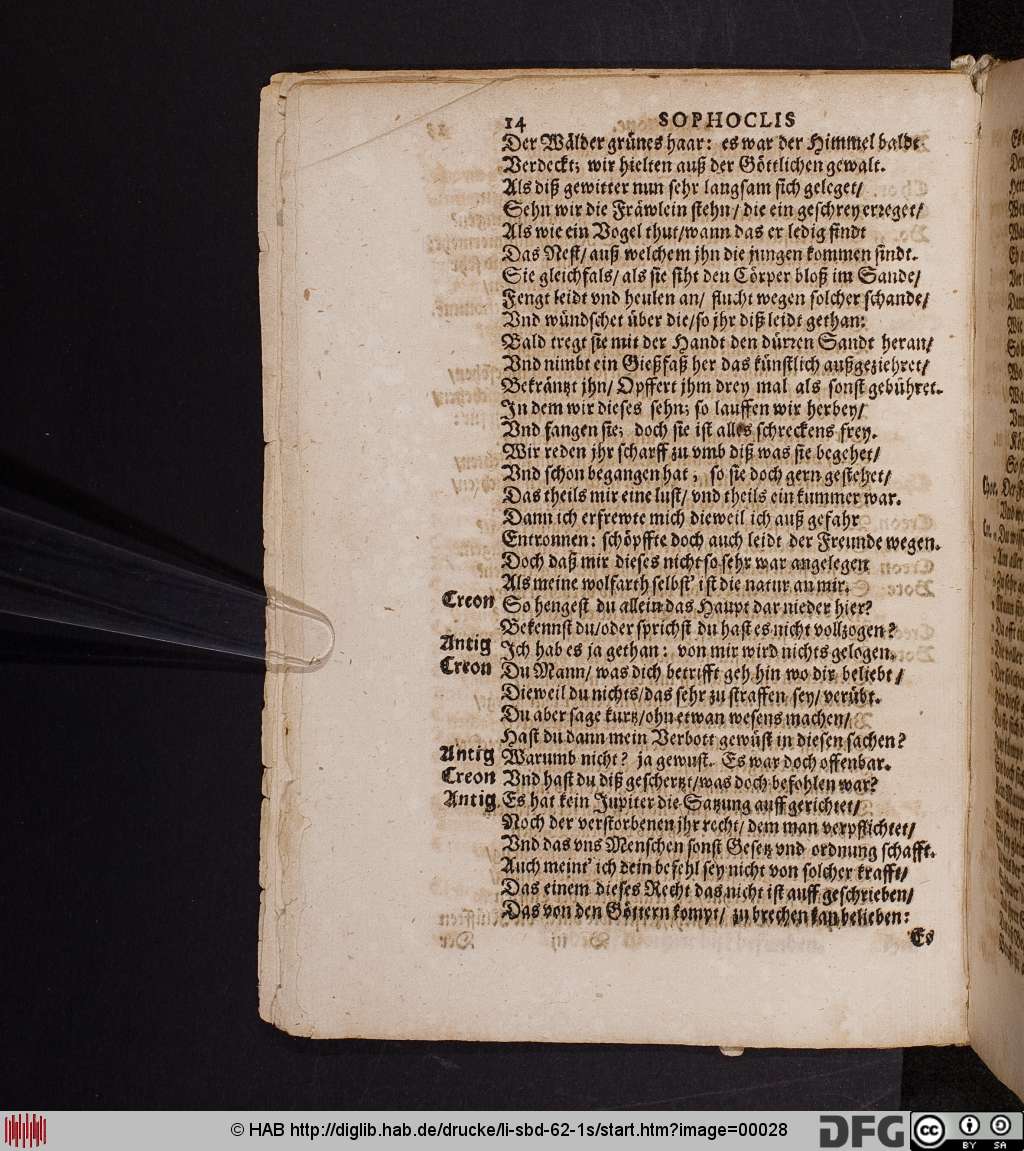 14 SOPHOCLIS
Der Wälder grünes haar: es war der Himmel baldt
Verdeckt; wir hielten auß der Göttlichen gewalt.
Als diß gewitter nun sehr langsam sich geleget/
Sehn wir die Fräwlein stehn/ die ein geschrey erreget/
Als wie ein Vogel thut/wann das er ledig findt
Das Nest/ auß welchem jhn die jungen kommen sindt.
Sie gleichfals/ als sie siht den Cörper bloß im Sande/
Fengt leidt vnd heulen an/ flucht wegen solcher schande/
Vnd wündschet über die/so jhr diß leidt gethan:
Bald tregt sie mit der Handt den dürren Sandt heran/
Vnd nimbt ein Gießfaß her das künstlich außgeziehret/
Bekräntzt jhn/ Opffert jhm drey mal als sonst gebühret.
In dem wir dieses sehn; so lauffen wir herbey/
Vnd fangen sie; doch sie ist alles schreckens frey.
Wir reden jhr scharff zu vmb diß was sie begehet/
Vnd schon begangen hat, so sie doch gern gestehet/
Das theils mir eine lust/ vnd theils ein kummer war.
Dann ich erfrewte mich dieweil ich auß gefahr
Entronnen: schöpffte doch auch leidt der Freunde wegen.
Doch daß mir dieses nicht so sehr war angelegen
Als meine wolfarth selbst' ist die natur an mir.
Creon So hengest du allein das Haupt dar nieder hier?
Bekennst du/oder sprichst du hast es nicht vollzogen?
Antig Ich hab es ja gethan: von mir wird nichts gelogen.
Creon Du Mann/ was dich betrifft geh hin wo dir beliebt/
Dieweil du nichts/das sehr zu straffen sey/ verübt.
Du aber sage kurtz/ohn etwan wesens machen/
Hast du dann mein Verbott gewüst in diesen sachen?
Antig Warumb nicht? ja gewust. Es war doch offenbar.
Creon Vnd hast du diß geschertzt/was doch befohlen war?
Antig. Es hat kein Jupiter die Satzung auff gerichtet/
Noch der verstorbenen jhr recht/ dem man verpflichtet/
Vnd das vns Menschen sonst Gesetz vnd ordnung schafft.
Auch meint' ich dein befehl sey nicht von solcher krafft/
Das einem dieses Recht das nicht ist auff geschrieben/
Das von den Göttern kompt/ zu brechen kan belieben:
Es
© HAB http://diglib.hab.de/drucke/li-sbd-62-1s/start.htm?image=00028
DFG
cc
BY SA